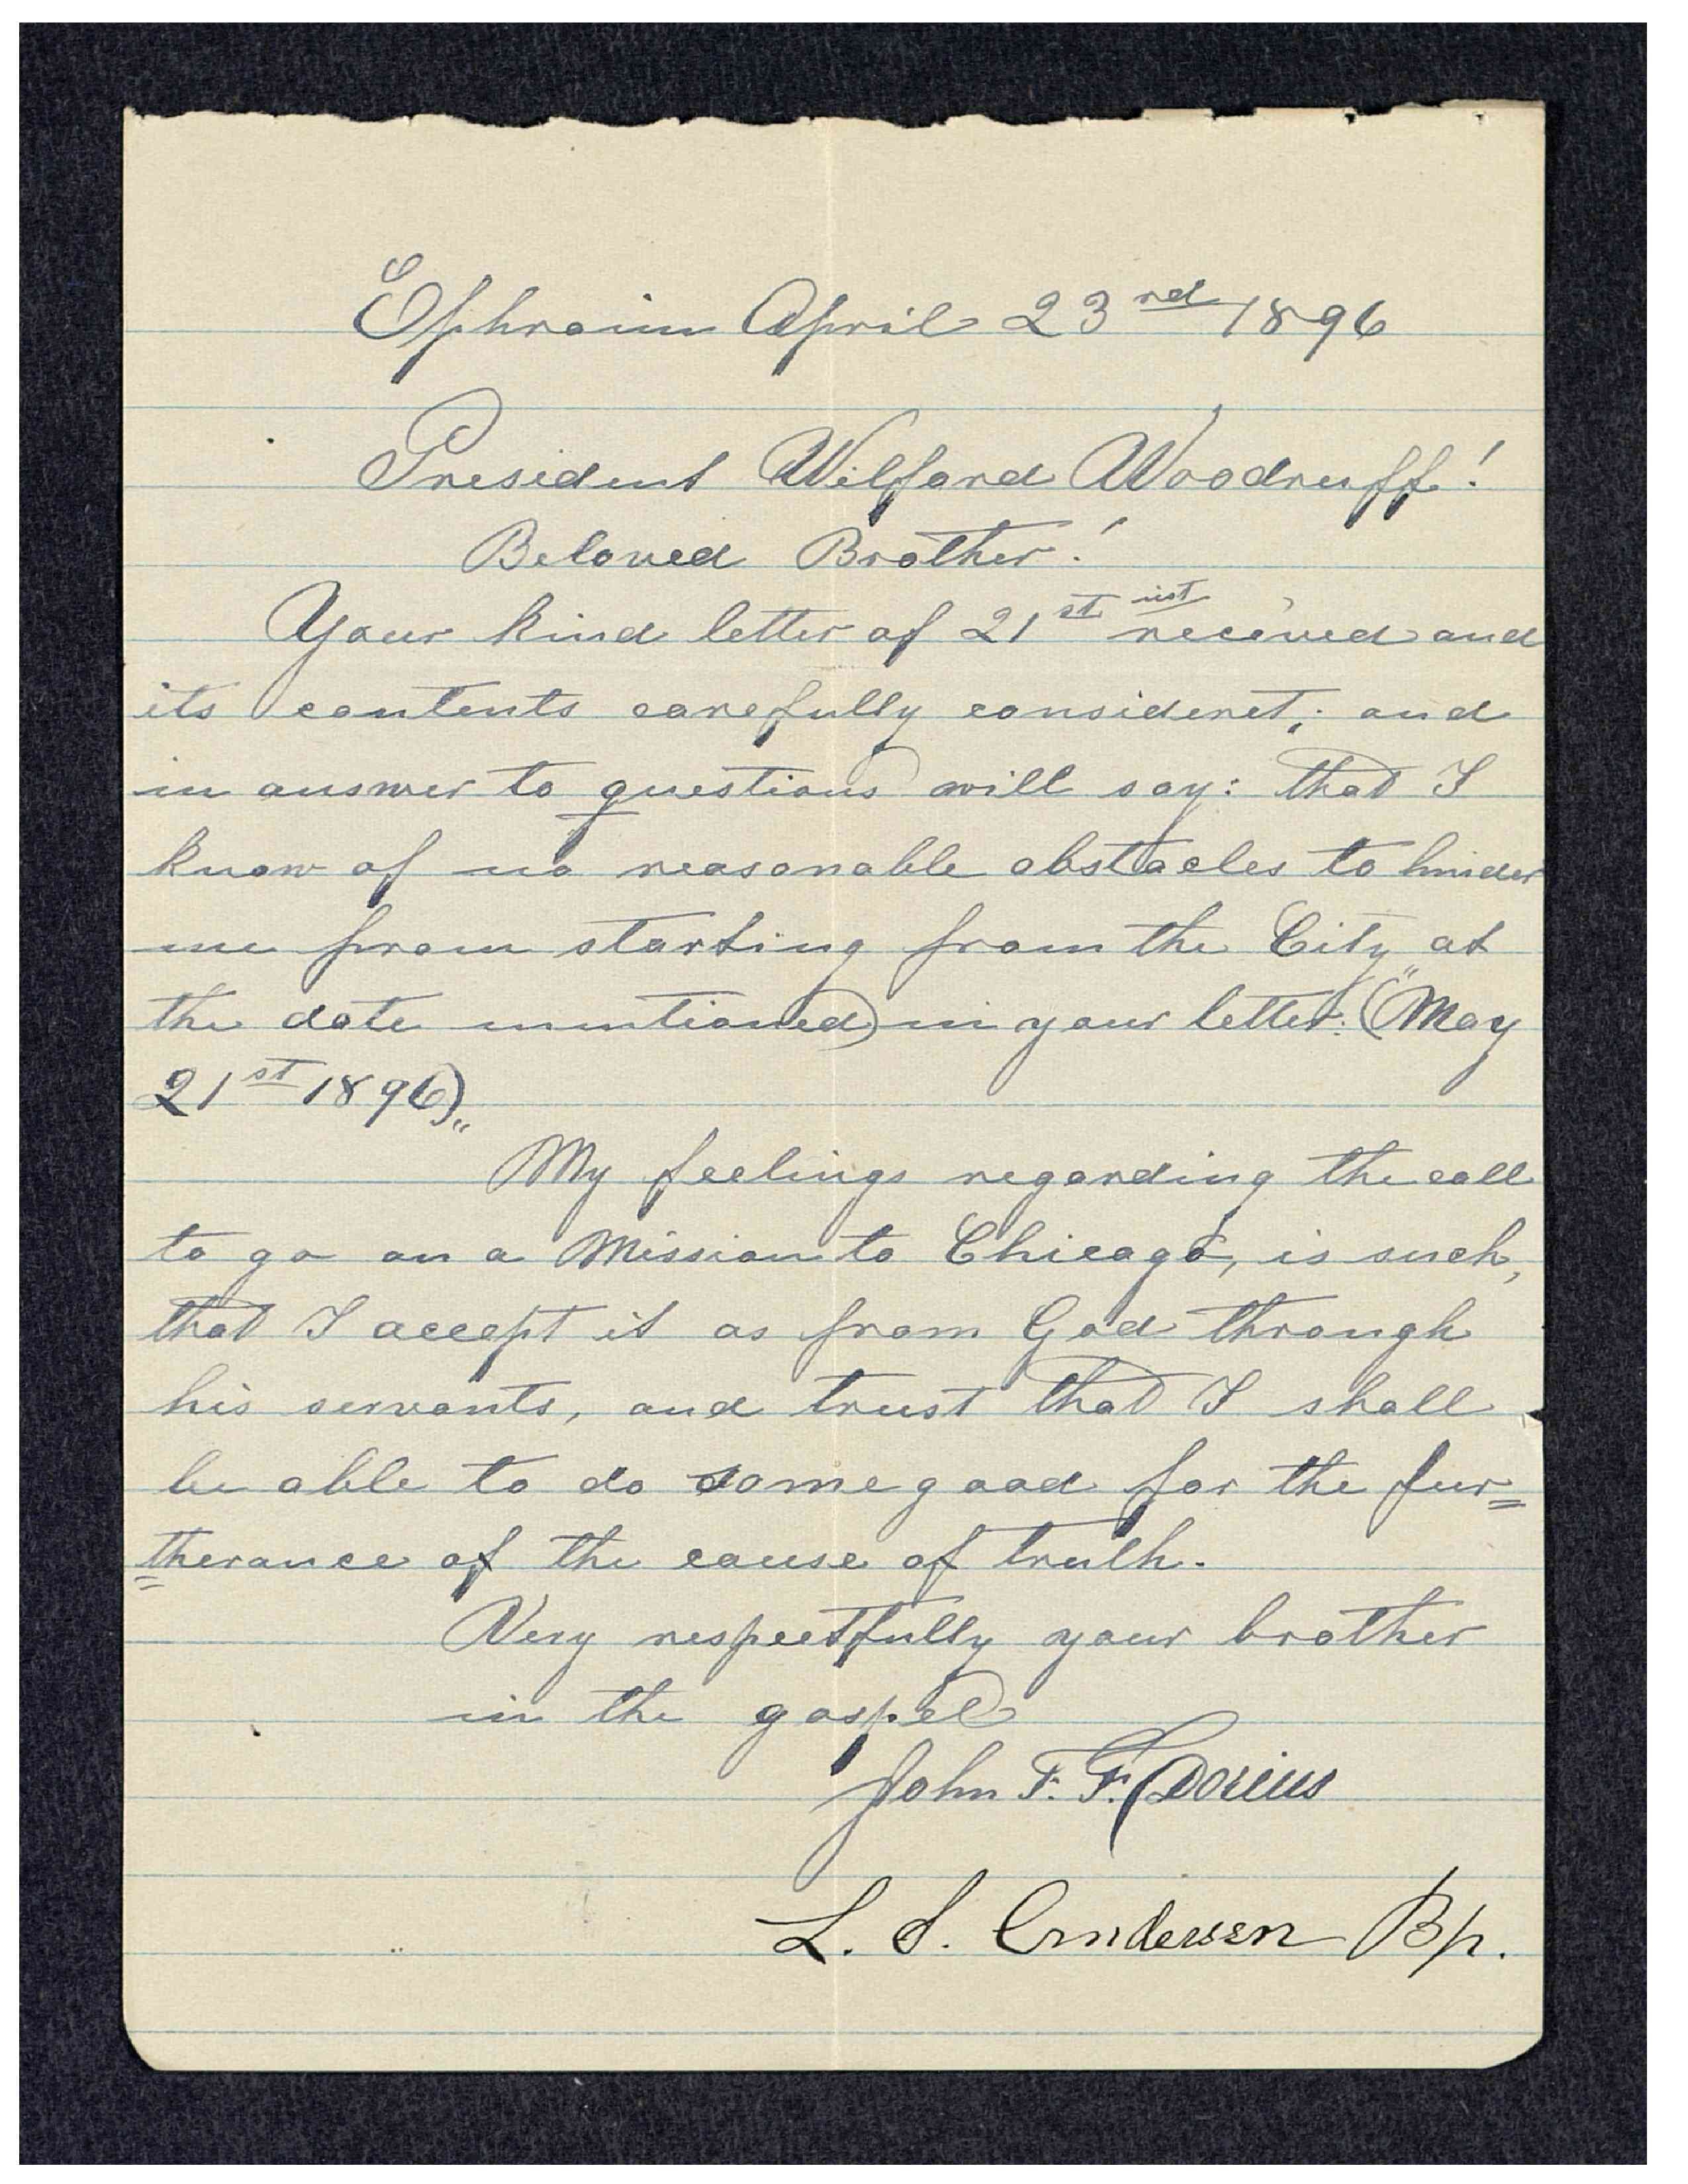 Ephraim April 23rd 1896
President Wilford Woodruff!
Beloved Brother!
Your kind letter of 21st inst received and
its contents carefully consideret; and
in answer to questions will say: that I
know of no reasonable obstacles to hinder
me from starting from the City at
the date mentioned in your letter: "(May
21st 1896)"
My feelings regarding the call
to go on a Mission to Chicago, is such,
that I accept it as from God through
his servants, and trust that I shall
be able to do some good for the fur=
=therance of the cause of truth.
Very respectfully your brother
in the gospel
John F. F. Dorius
L. S. Andersen Bp.